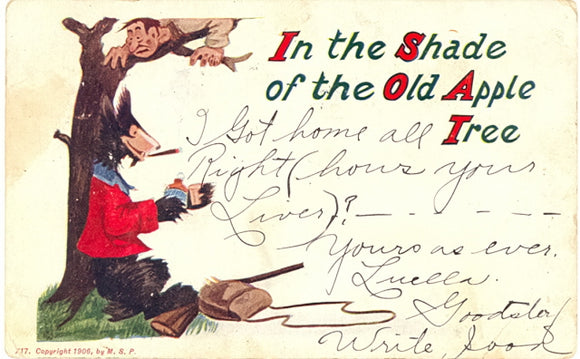 In the Shade
of the Old Apple
Tree
I Got home all
Right (hows your
Liver)? — - - - - -
Yours as ever.
Luella.
Write, Soon
717. Copyright 1906, by M. S. P.